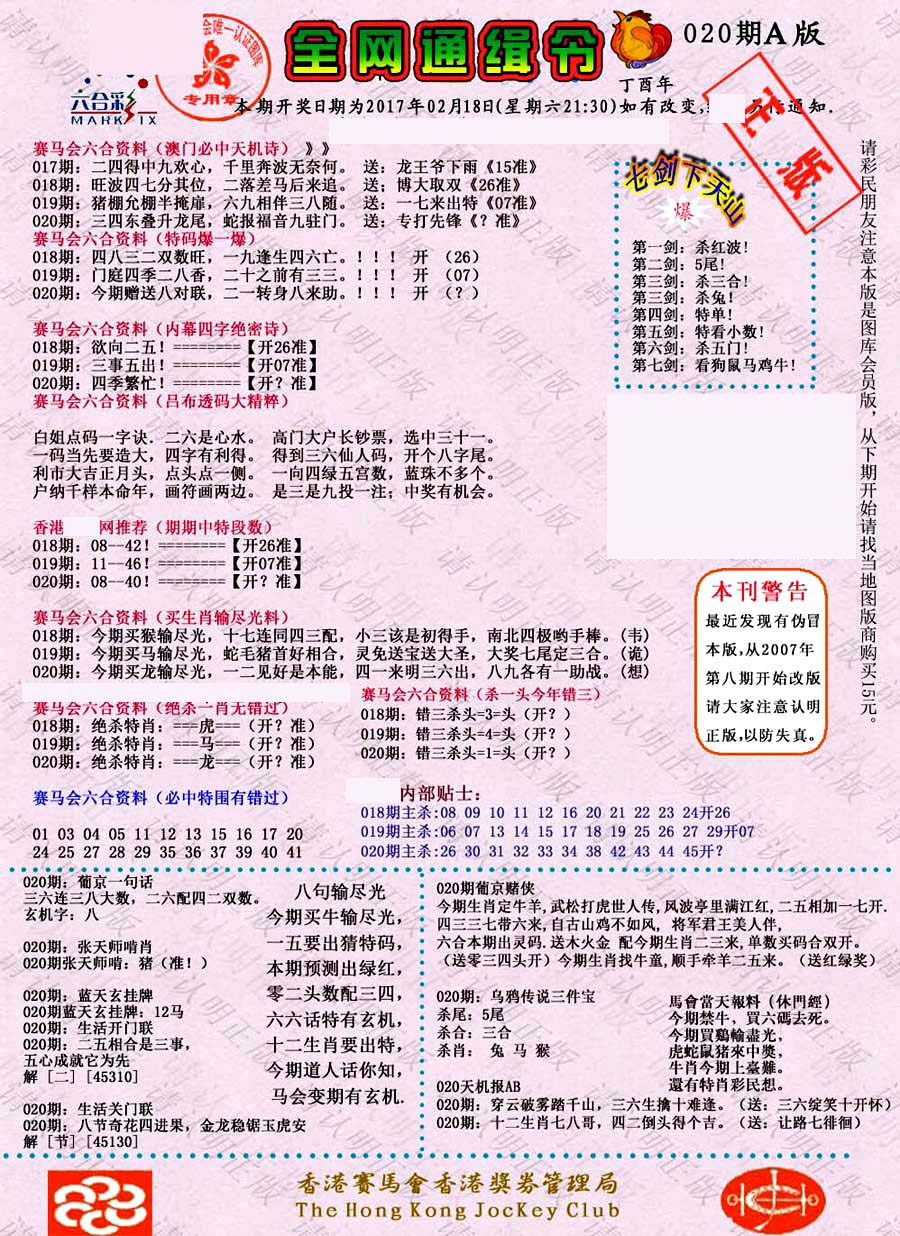 全网通缉令
020期A版
丁酉年
六合彩
专用章
本期开奖日期为2017年02月18日(星期六21:30)如有改变,
通知.
正版
赛马会六合资料（澳门必中天机诗）》》
017期：二四得中九欢心，千里奔波无奈何。 送：龙王爷下雨《15准》
018期：旺波四七分其位，二落差马后来追。 送；博大取双《26准》
019期：猪棚允棚半掩扉，六九相伴三八随。 送：一七来出特《07准》
020期：三四东叠升龙尾，蛇报福音九驻门。 送：专打先锋《？准》
赛马会六合资料（特码爆一爆）
018期：四八三二双数旺，一九逢生四六亡。！！！ 开 （26）
019期：门庭四季二八香，二十之前有三三。！！！ 开 （07）
020期：今期赠送八对联，二一转身八来助。！！！ 开 （？）
赛马会六合资料（内幕四字绝密诗）
018期：欲向二五！========【开26准】
019期：三事五出！========【开07准】
020期：四季繁忙！========【开？准】
赛马会六合资料（吕布透码大精粹）
白姐点码一字诀．二六是心水。 高门大户长钞票，选中三十一。
一码当先要造大，四字有利得。 得到三六仙人码，开个八字尾。
利市大吉正月头，点头点一侧。 一向四绿五宫数，蓝珠不多个。
户纳千样本命年，画符画两边。 是三是九投一注；中奖有机会。
香港 网推荐（期期中特段数）
018期：08--42！========【开26准】
019期：11--46！========【开07准】
020期：08--40！========【开？准】
赛马会六合资料（买生肖输尽光料）
018期：今期买猴输尽光，十七连同四三配，小三该是初得手，南北四极哟手棒。(韦)
019期：今期买马输尽光，蛇毛猪首好相合，灵兔送宝送大圣，大奖七尾定三合。(诡)
020期：今期买龙输尽光，一二见好是本能，四一来明三六出，八九各有一助战。(想)
赛马会六合资料（绝杀一肖无错过）
018期：绝杀特肖：===虎===（开？准）
019期：绝杀特肖：===马===（开？准）
020期：绝杀特肖：===龙===（开？准）
赛马会六合资料（杀一头今年错三）
018期：错三杀头=3=头（开？）
019期：错三杀头=4=头（开？）
020期：错三杀头=1=头（开？）
赛马会六合资料（必中特围有错过）
01 03 04 05 11 12 13 15 16 17 20
24 25 27 28 29 35 36 37 39 40 41
内部贴士：
018期主杀:08 09 10 11 12 16 20 21 22 23 24开26
019期主杀:06 07 13 14 15 17 18 19 25 26 27 29开07
020期主杀:26 30 31 32 33 34 38 42 43 44 45开?
七剑下天山
爆
第一剑：杀红波！
第二剑：5尾！
第三剑：杀三合！
第三剑：杀兔！
第四剑：特单！
第五剑：特看小数！
第六剑：杀五门！
第七剑：看狗鼠马鸡牛！
请彩民朋友注意本版是图库会员版，从下期开始请找当地图版商购买15元。
本刊警告
最近发现有伪冒
本版,从2007年
第八期开始改版
请大家注意认明
正版,以防失真。
020期：葡京一句话
三六连三八大数，二六配四二双数。
玄机字：八
020期：张天师啃肖
020期张天师啃：猪（准！）
020期：蓝天玄挂牌
020期蓝天玄挂牌：12马
020期：生活开门联
020期：二五相合是三事，
五心成就它为先
解 [二] [45310]
020期：生活关门联
020期：八节奇花四进果，金龙稳锯玉虎安
解 [节] [45130]
八句输尽光
今期买牛输尽光，
一五要出猜特码，
本期预测出绿红，
零二头数配三四，
六六话特有玄机，
十二生肖要出特，
今期道人话你知，
马会变期有玄机．
020期葡京赌侠
今期生肖定牛羊,武松打虎世人传,风波亭里满江红,二五相加一七开.
四三三七带六来,自古山鸡不如风, 将军君王美人伴,
六合本期出灵码.送木火金 配今期生肖二三来,单数买码合双开.
（送零三四头开）今期生肖找牛童,顺手牵羊二五来。（送红绿奖）
020期：乌鸦传说三件宝
杀尾：5尾
杀合：三合
杀肖： 兔 马 猴
馬會當天報料（休門經）
今期禁牛、買六碼去死。
今期買鷄輸盡光，
虎蛇鼠猪來中獎，
牛肖今期上臺難。
還有特肖彩民想。
020天机报AB
020期：穿云破雾踏千山，三六生擒十难逢。（送：三六绽笑十开怀）
020期：十二生肖七八哥，四二倒头得个吉。（送：让路七徘徊）
香港賽馬會香港獎券管理局
The Hong Kong JocKey Club